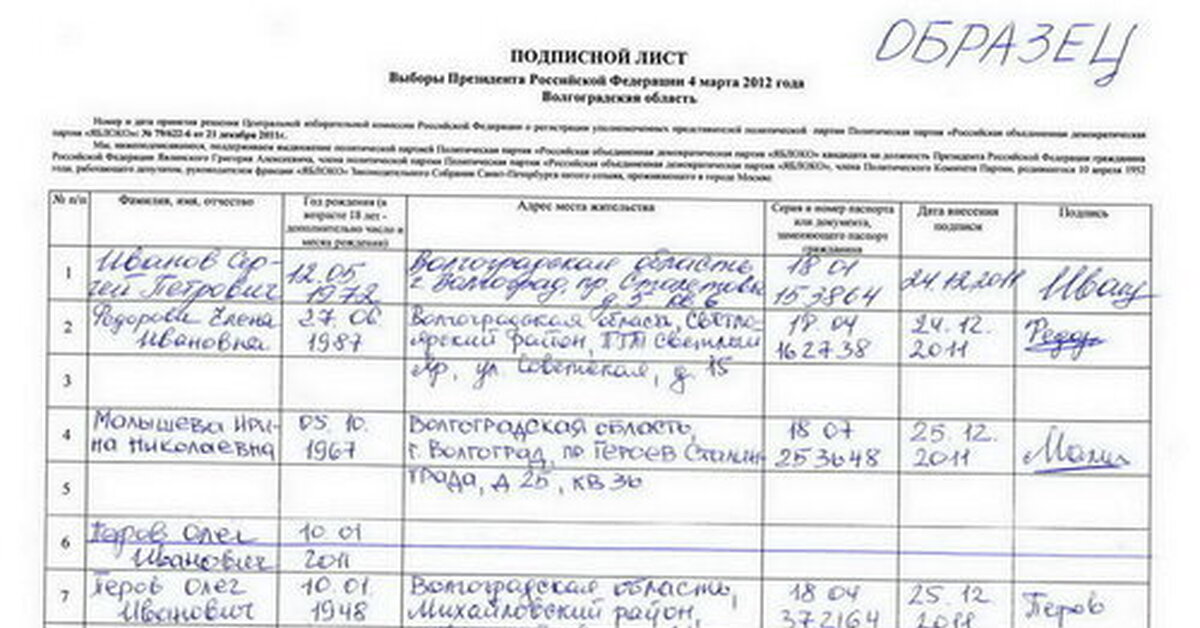 ОБРАЗЕЦ
ПОДПИСНОЙ ЛИСТ
Выборы Президента Российской Федерации 4 марта 2012 года
Волгоградская область
Номер и дата принятия решения Центральной избирательной комиссии Российской Федерации о регистрации уполномоченных представителей политической партии Политическая партия «Российская объединенная демократическая
партия «ЯБЛОКО»: № 79/622-6 от 21 декабря 2011г.
Мы, нижеподписавшиеся, поддерживаем выдвижение политической партией Политическая партия «Российская объединенная демократическая партия «ЯБЛОКО» кандидата на должность Президента Российской Федерации гражданина
Российской Федерации Явлинского Григория Алексеевича, члена политической партии Политическая партия «Российская объединенная демократическая партия «ЯБЛОКО», члена Политического Комитета Партии, родившегося 10 апреля 1952
года, работающего депутатом, руководителем фракции «ЯБЛОКО» Законодательного Собрания Санкт-Петербурга пятого созыва, проживающего в городе Москве
№ п/п Фамилия, имя, отчество Год рождения (в возрасте 18 лет - дополнительно число и месяц рождения) Адрес места жительства Серия и номер паспорта или документа, заменяющего паспорт гражданина Дата внесения подписи Подпись
1 Иванов Сер- 12.05 Волгоградская область 18 01 24.12.2011 Иван
гей Петрович 1972 г. Волгоград, пр. 153864
д. 5 кв. 6
2 Федорова Елена 27. 06 Волгоградская область, Светло- 18 04 24. 12. Федор
Ивановна 1987 ярский район, ПГТ Светлый 162738 2011
3 Яр, ул. Советская, д. 15
4 Малышева Ири- 05. 10. Волгоградская область, 18 07 25. 12. Малыш
на Николаевна 1967 г. Волгоград, пр Героев Сталин- 253648 2011
5 града, д 25, кв 36
6 Перов Олег 10 01
Иванович 2011
7 Перов Олег 10.01. Волгоградская область, 18 04 25. 12 Перов
Иванович 1948 Михайловский район, 372164 2011